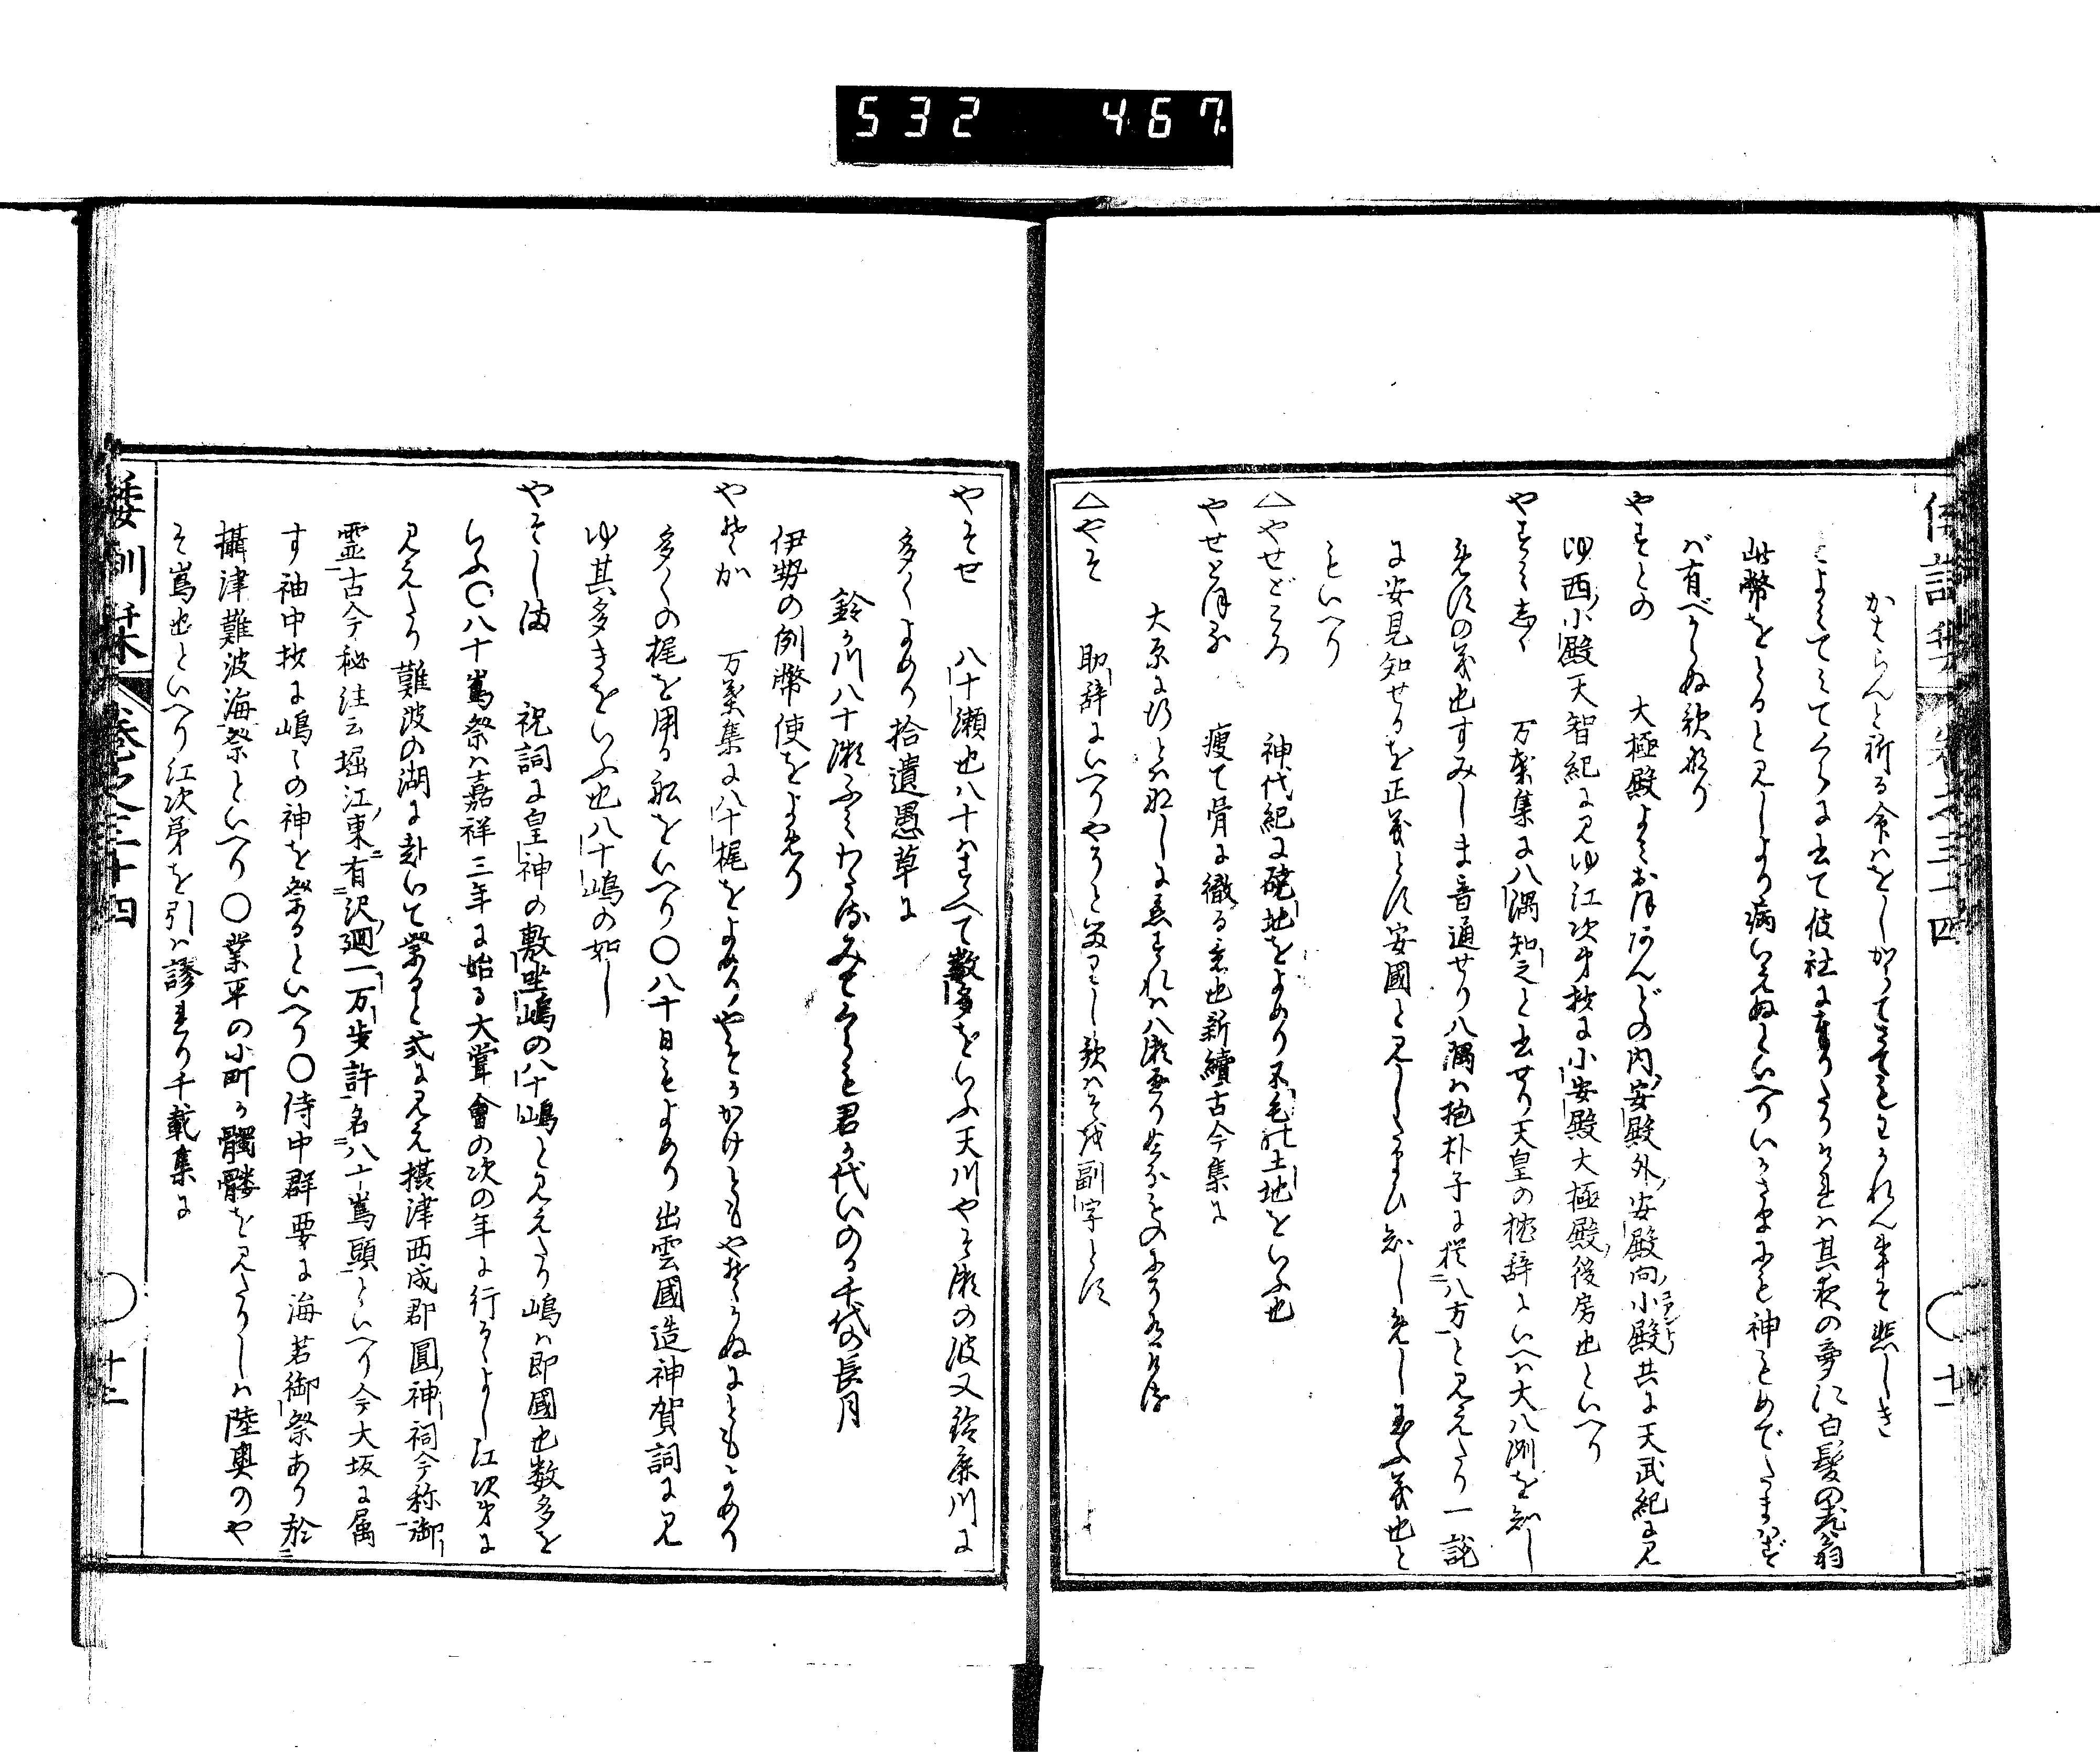 532 467
倭訓栞 卷之三十四 ○ 十一
かはらんと祈る命はをしからてさてもわかれん事そ悲しき
とよみてみてくらに書て住社に奉りたりければ其夜の夢に白髪の老翁
此幣をとると見しより病いえぬといへりいかさまにも神もめでたまはず
ば有べからぬ歌なり
やすとの 大極殿よみおほかんどの内安殿外安殿向小殿共に天武紀に見
ゆ西小殿天智紀に見ゆ江次第抄に小安殿大極殿後房也といへり
やすみしし 万葉集に八隅知之と書せり天皇の枕辞にいへは大八洲を知し
めすの義也すみしま音通せり八隅は抱朴子に從八方と見えたり一説
に安見知せるを正義とす安國と見したまひ知しめし玉ふ義也と
もいへり
△やせどころ 神代紀に磽地をよめり不毛の土地をいふ也
やせとほる 痩て骨に徹る意也新續古今集に
大原に
△やそ 助辞にいへりやうと留りし歌はそは副字とす
やそせ 八十瀬也八十はすへて数多をいふ天川やそ瀬の波又鈴鹿川に
多くよめり拾遺愚草に
鈴か川八十瀬ふみわたるみてくらも君か代いのる千代の長月
伊勢の例幣使をよめり
やそか 万葉集に八十梶をよめりやそかかけともやそかぬにともよめり
多くの梶を用る舩をいへり○八十日もよめり出雲國造神賀詞に見
ゆ其多きをいふ也八十嶋の如し
やそしま 祝詞に皇神の敷坐嶋の八十嶋と見えたり嶋は即國也数多を
いふ○八十嶌祭は嘉祥三年に始る大甞會の次の年に行るよし江次第に
見えたり難波の湖に赴いて祭ると式に見え攝津西成郡圓神祠今称御
霊古今秘注云堀江東有沢廻一万歩許名八十嶌頭といへり今大坂に属
す袖中抄に嶋々の神を祭るといへり○侍中群要に海若御祭あり於
攝津難波海祭といへり○業平の小町か髑髏を見たりしは陸奥のや
そ嶌也といへり江次第を引は謬れり千載集に
倭訓栞 卷之三十四 ○ 十二